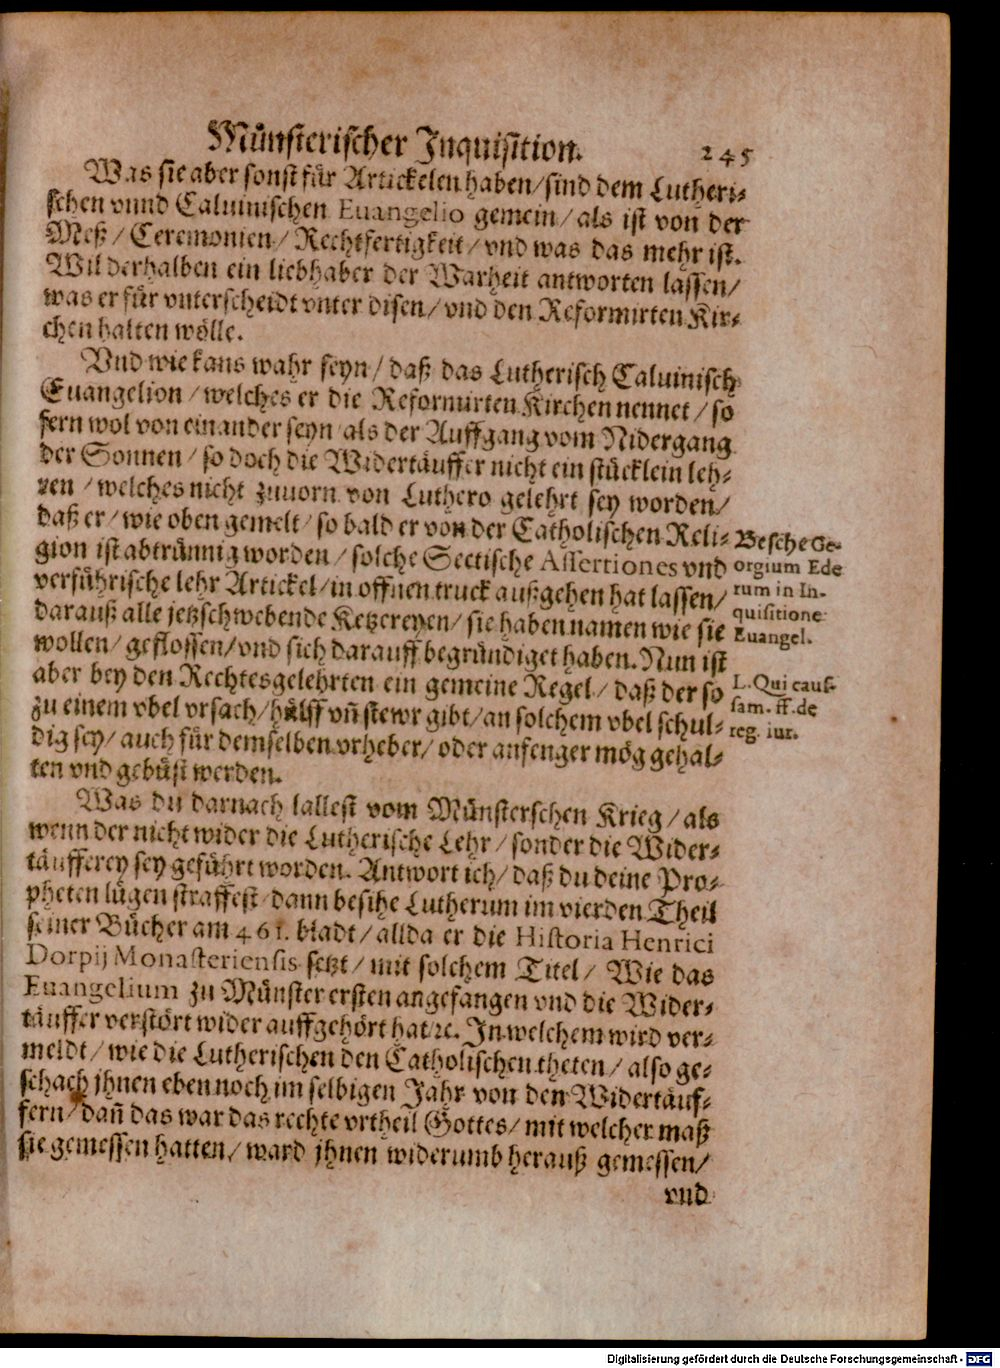 Münsterischer Inquisition. 245
Was sie aber sonst für Artickelen haben/sind dem Lutheri-
schen vnnd Caluinischen Euangelio gemein/als ist von der
Meß/Ceremonien/Rechtfertigkeit/vnd was das mehr ist.
Wil derhalben ein liebhaber der Warheit antworten lassen/
was er für vnterscheidt vnter disen/vnd den Reformirten Kir-
chen halten wölle.
Vnd wie kans wahr seyn/daß das Lutherisch Caluinisch
Euangelion/welches er die Reformirten Kirchen nennet/so
fern wol von einander seyn/als der Auffgang vom Nidergang
der Sonnen/so doch die Widertäuffer nicht ein stücklein leh-
ren/welches nicht zuuorn von Luthero gelehrt sey worden/
daß er/wie oben gemelt/so bald er von der Catholischen Reli-
gion ist abtrünnig worden/solche Sectische Assertiones vnd
verführische lehr Artickel/in offnen truck außgehen hat lassen/
darauß alle jetzschwebende Ketzereyen/sie haben namen wie sie
wollen/geflossen/vnd sich darauff begründiget haben. Nun ist
aber bey den Rechtesgelehrten ein gemeine Regel/daß der so
zu einem vbel vrsach/hülff vñ stewr gibt/an solchem vbel schul-
dig sey/auch für demselben vrheber/oder anfenger mög gehal-
ten vnd gebüst werden.
Besehe Ge-
orgium Ede
rum in In-
quisitione
Euangel.
L. Qui caus-
sam. ff. de
reg. iur.
Was du darnach lallest vom Münsterschen Krieg/als
wenn der nicht wider die Lutherische Lehr/sonder die Wider-
täufferey sey geführt worden. Antwort ich/daß du deine Pro-
pheten lügen straffest/dann besihe Lutherum im vierden Theil
seiner Bücher am 461. bladt/allda er die Historia Henrici
Dorpij Monasteriensis setzt/mit solchem Titel/Wie das
Euangelium zu Münster ersten angefangen vnd die Wider-
täuffer verstört wider auffgehört hat/ꝛc. In welchem wird ver-
meldt/wie die Lutherischen den Catholischen theten/also ge-
schach jhnen eben noch im selbigen Jahr von den Widertäuf-
fern/dañ das war das rechte vrtheil Gottes/mit welcher maß
sie gemessen hatten/ward jhnen widerumb herauß gemessen/
vnd
Digitalisierung gefördert durch die Deutsche Forschungsgemeinschaft - DFG